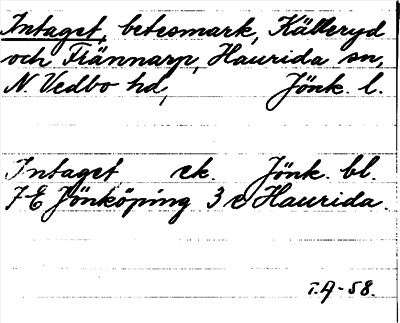 Intaget, betesmark, Källeryd
och Frännarp, Haurida sn,
N. Vedbo hd, Jönk. l.
Intaget ek. Jönk. bl.
7E Jönköping 3 c Haurida.
T.A-58.